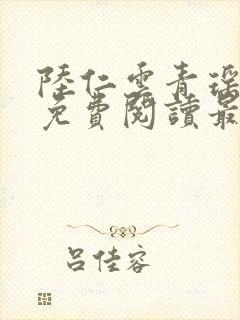 陸仁雲青瑶
免費閱讀最
呂佳容